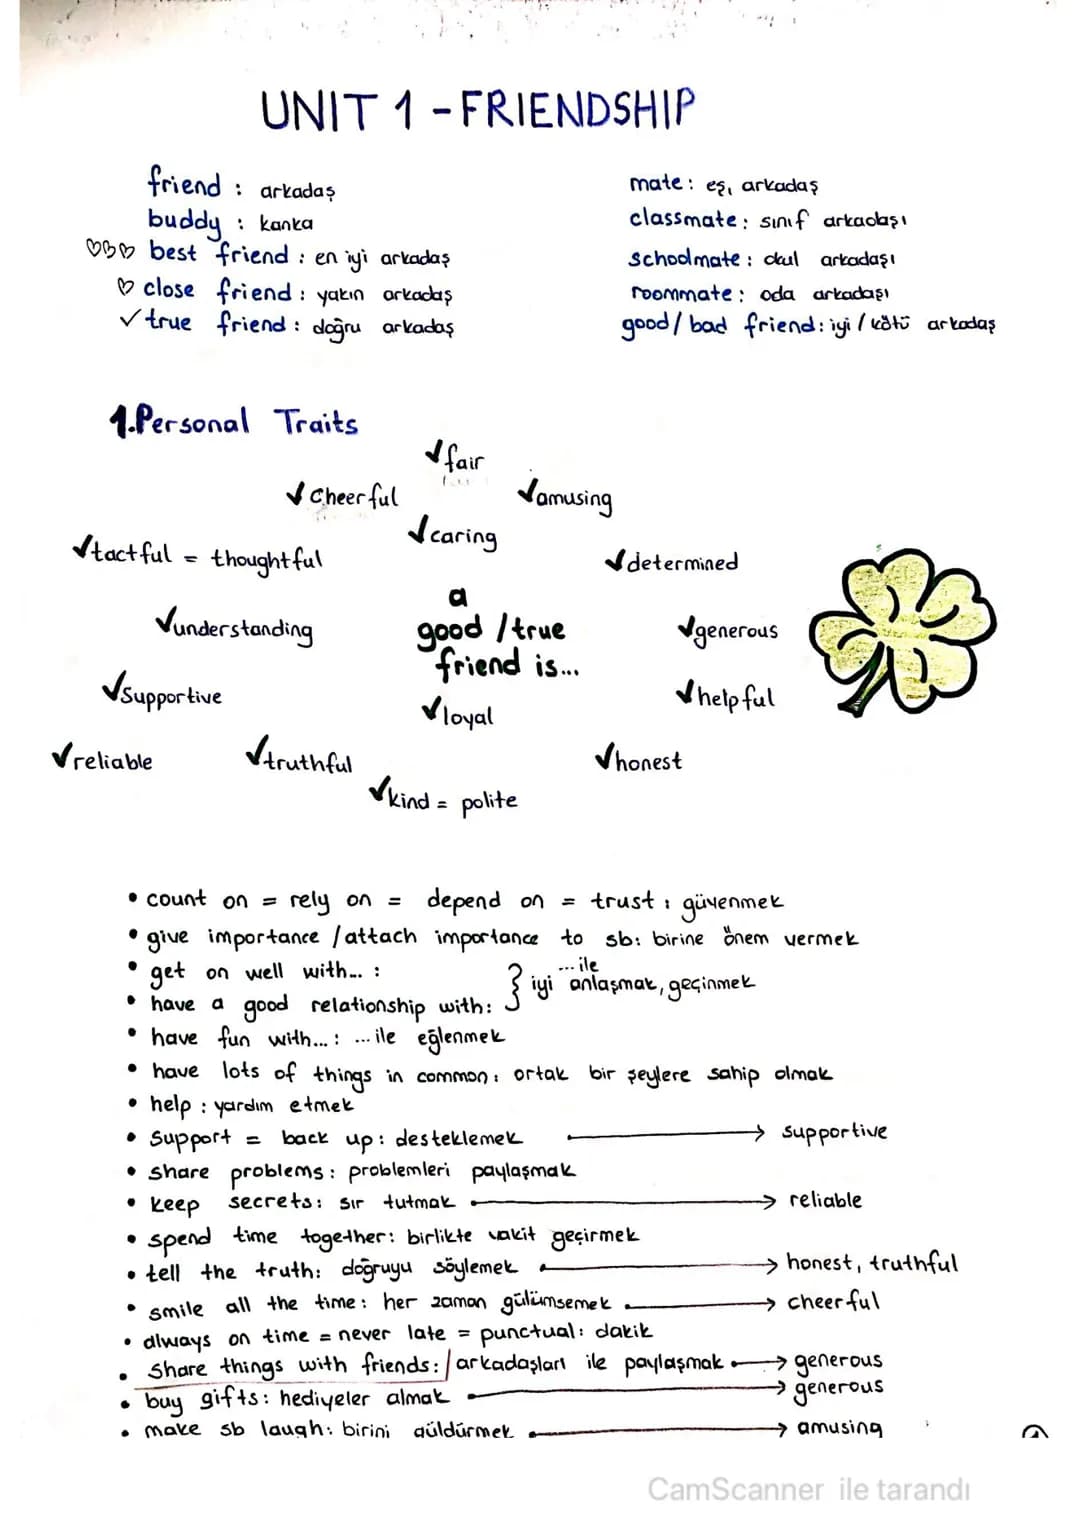 UNIT 1 - FRIENDSHIP
friend : arkadaş
buddy : kanka
best friend : en iyi arkadaş
close friend : yakın arkadaş
true friend : doğru arkadaş
mate : eş, arkadaş
classmate : sınıf arkadaşı
schoolmate : okul arkadaşı
roommate : oda arkadaşı
good / bad friend : iyi / kötü arkadaş
1.Personal Traits
✓fair
✓Cheerful
✓amusing
✓caring
✓tactful = thoughtful
✓determined
✓understanding
a
good / true
friend is...
✓generous
✓supportive
✓loyal
✓helpful
✓reliable
✓truthful
✓honest
✓kind = polite
• count on = rely on = depend on = trust : güvenmek
• give importance / attach importance to sb: birine önem vermek
• get on well with... :
• have a good relationship with: } ... ile iyi anlaşmak, geçinmek
• have fun with... : ... ile eğlenmek
• have lots of things in common : ortak bir şeylere sahip olmak
• help : yardım etmek
• Support = back up : desteklemek → supportive
• share problems : problemleri paylaşmak
• keep secrets : sır tutmak → reliable
• spend time together : birlikte vakit geçirmek
• tell the truth : doğruyu söylemek → honest, truthful
• smile all the time : her zaman gülümsemek → cheerful
• always on time = never late = punctual : dakik
• Share things with friends : / arkadaşları ile paylaşmak → generous
• buy gifts : hediyeler almak → generous
• make sb laugh : birini güldürmek → amusing
CamScanner ile tarandı